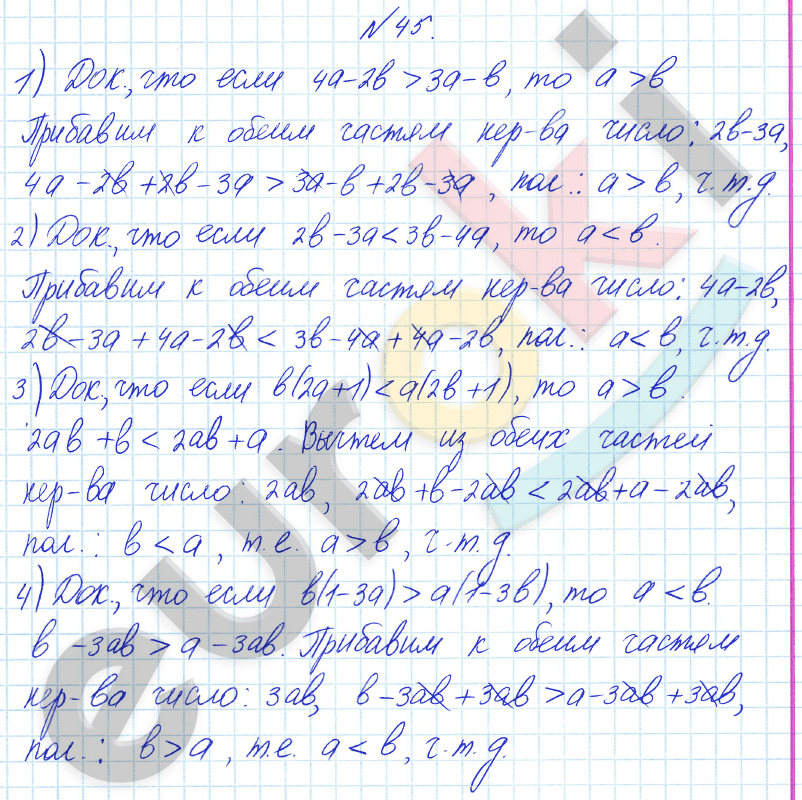 №45.
1) Док., что если 4а-2в>3а-в, то а>в
Прибавим к обеим частям нер-ва число: 2в-3а,
4а-2в+2в-3а>3а-в+2в-3а, пол.: а>в, ч.т.д.
2) Док., что если 2в-3а<3в-4а, то а<в.
Прибавим к обеим частям нер-ва число: 4а-2в,
2в-3а+4а-2в<3в-4а+4а-2в, пол.: а<в, ч.т.д.
3) Док., что если в(2а+1)<а(2в+1), то а>в.
2ав+в<2ав+а. Вычтем из обеих частей
нер-ва число: 2ав, 2ав+в-2ав<2ав+а-2ав,
пол.: в<а, т.е. а>в, ч.т.д.
4) Док., что если в(1-3а)>а(1-3в), то а<в.
в-3ав>а-3ав. Прибавим к обеим частям
нер-ва число: 3ав, в-3ав+3ав>а-3ав+3ав,
пол.: в>а, т.е. а<в, ч.т.д.
euroki